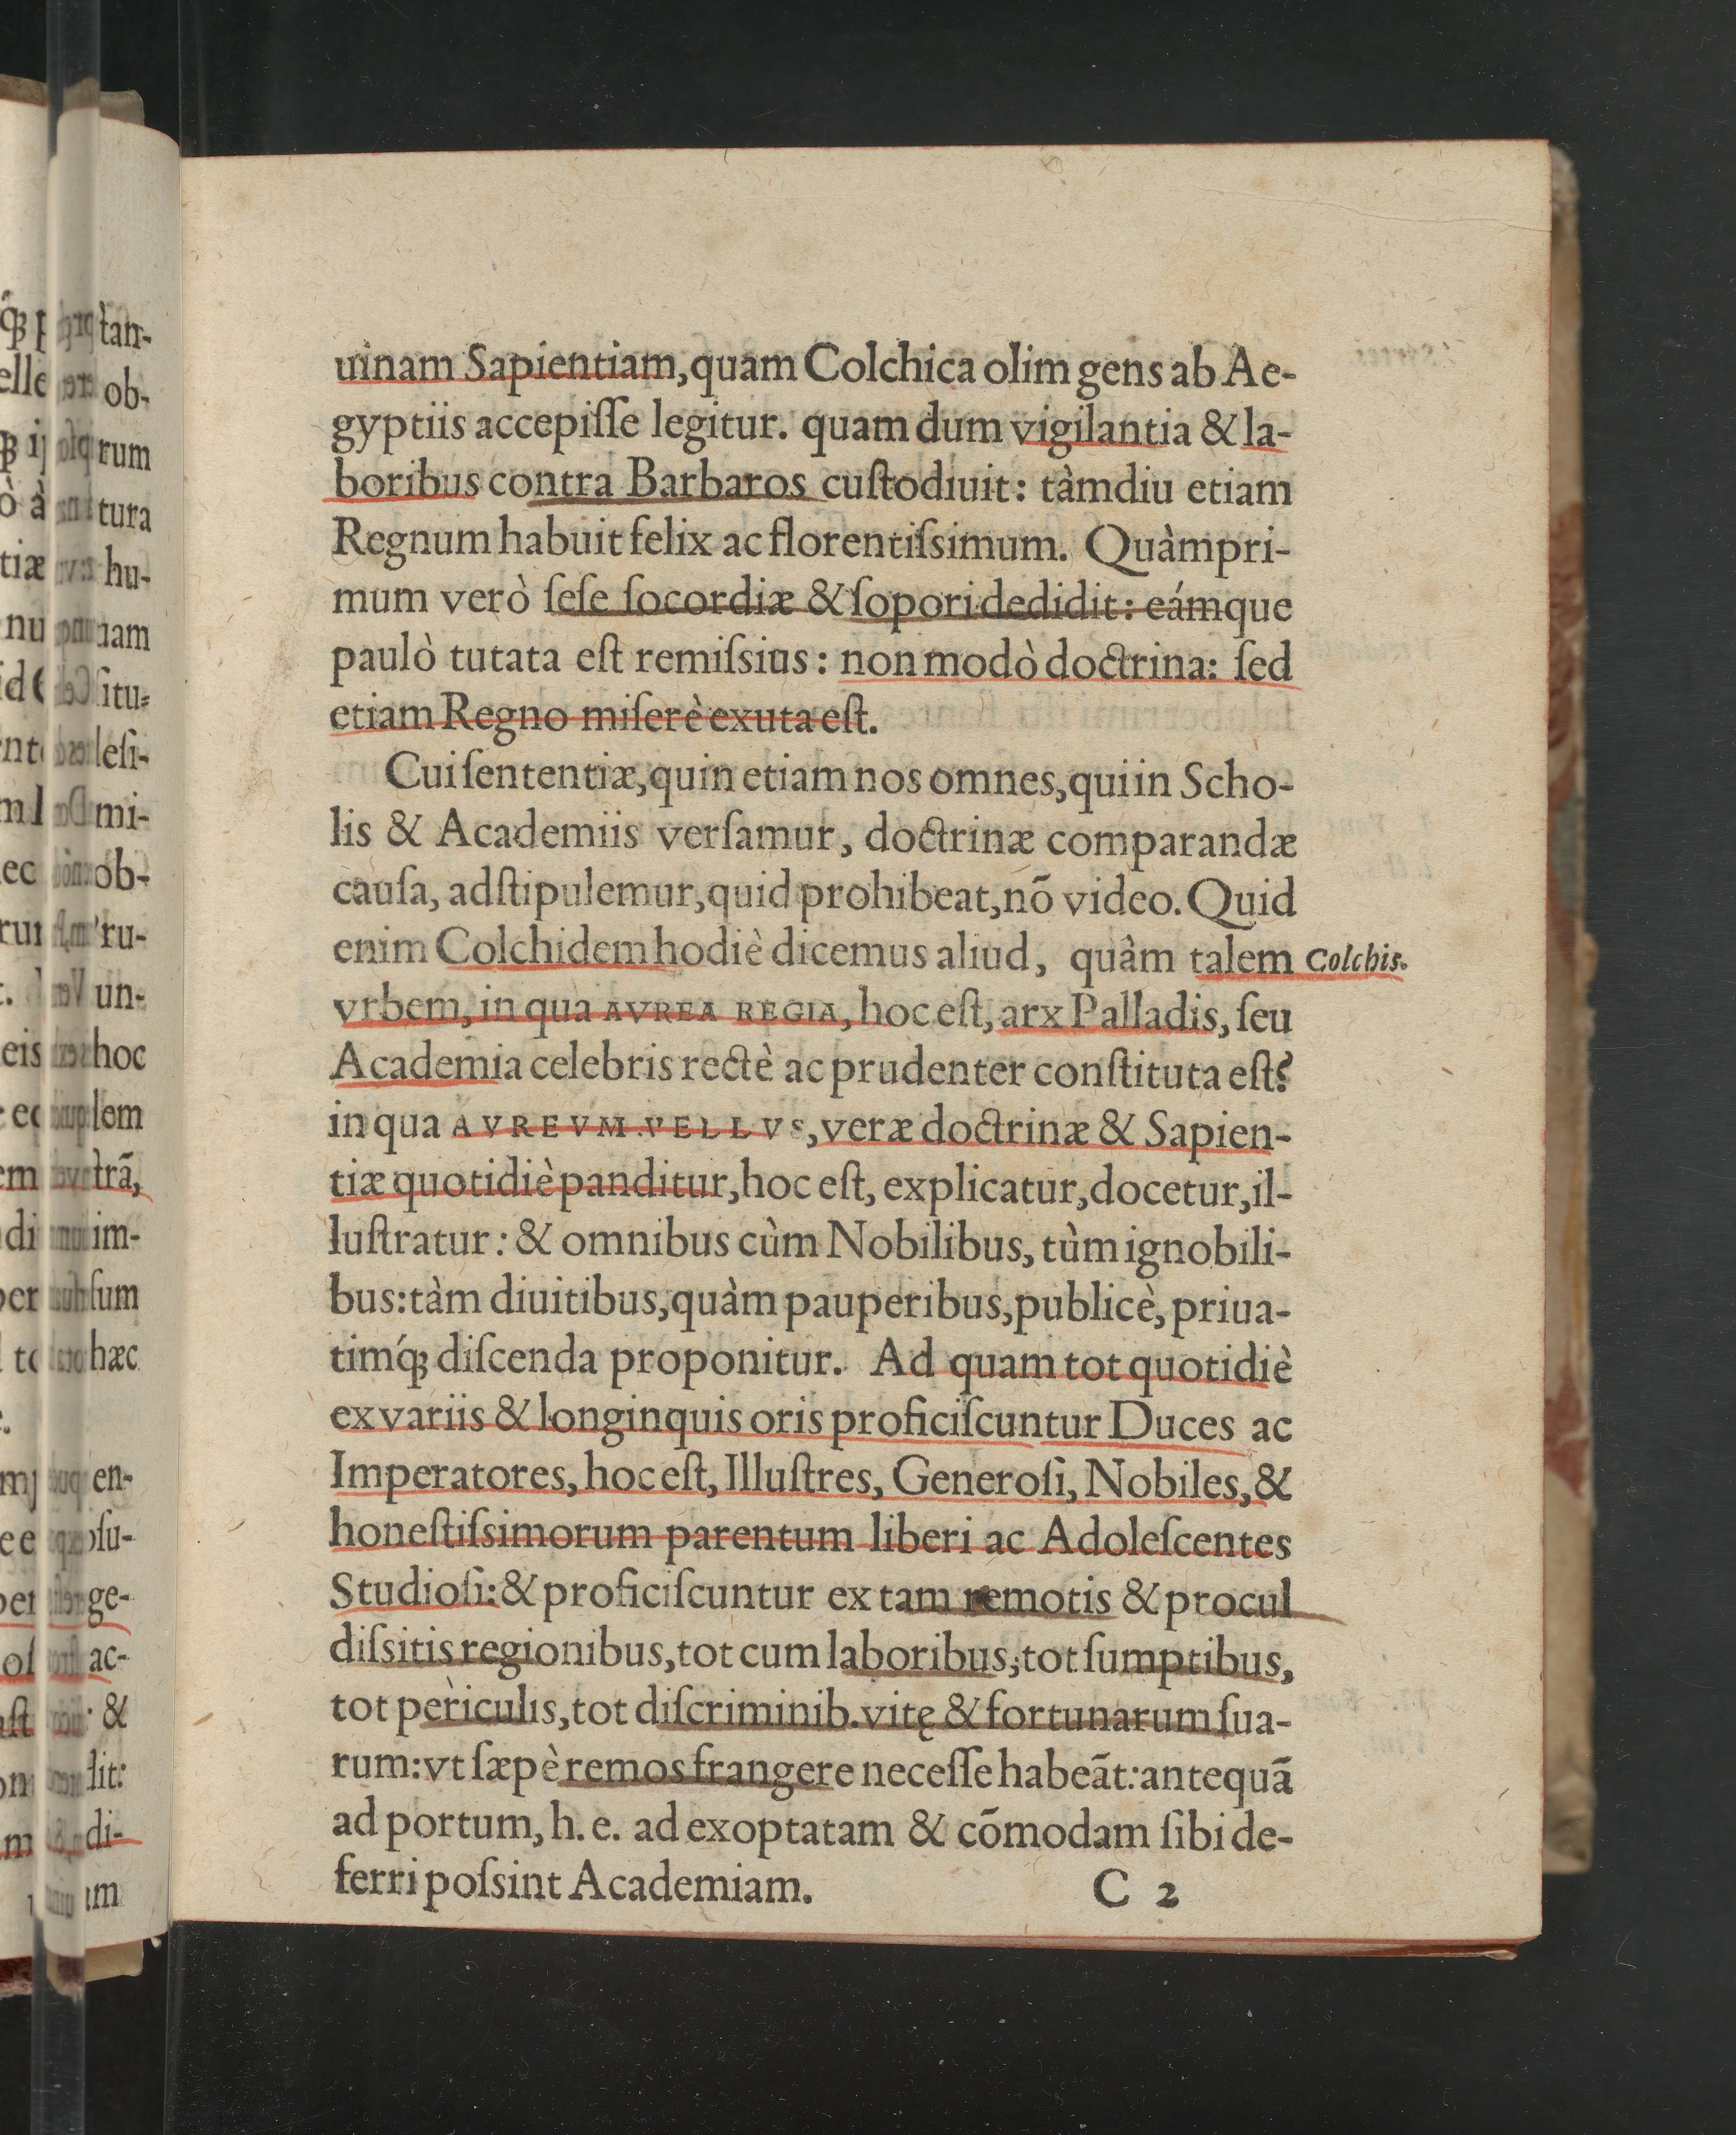 uinam Sapientiam, quam Colchica olim gens ab Ae-
gyptiis accepiſſe legitur. quam dum vigilantia & la-
boribus contra Barbaros cuſtodiuit: tàmdiu etiam
Regnum habuit felix ac florentiſsimum. Quàmpri-
mum verò ſeſe ſocordiæ & ſopori dedidit: eámque
paulò tutata eſt remiſsius: non modò doctrina: ſed
etiam Regno miſerè exuta eſt.
Cui ſententiæ, quin etiam nos omnes, qui in Scho-
lis & Academiis verſamur, doctrinæ comparandæ
cauſa, adſtipulemur, quid prohibeat, nõ video. Quid
enim Colchidem hodiè dicemus aliud, quâm talem Colchis.
vrbem, in qua AVREA REGIA, hoc eſt, arx Palladis, ſeu
Academia celebris rectè ac prudenter conſtituta eſt?
in qua AVREVM VELLVS, veræ doctrinæ & Sapien-
tiæ quotidiè panditur, hoc eſt, explicatur, docetur, il-
luſtratur: & omnibus cùm Nobilibus, tùm ignobili-
bus: tàm diuitibus, quàm pauperibus, publicè, priua-
timq́ꝫ diſcenda proponitur. Ad quam tot quotidiè
ex variis & longinquis oris proficiſcuntur Duces ac
Imperatores, hoc eſt, Illuſtres, Generoſi, Nobiles, &
honeſtiſsimorum parentum liberi ac Adoleſcentes
Studioſi: & proficiſcuntur ex tam remotis & procul
diſsitis regionibus, tot cum laboribus, tot ſumptibus,
tot periculis, tot diſcriminib. vitę & fortunarum ſua-
rum: vt ſæpè remos frangere neceſſe habeãt: antequã
ad portum, h. e. ad exoptatam & cõmodam ſibi de-
ferri poſsint Academiam.
C 2
tan-
ob-
rum
tura
hu-
uam
ſitu-
leſi-
mi-
ob-
ru-
un-
hoc
lem
trã,
im-
ſum
hæc
en-
ſu-
ge-
ac-
&
dit:
di-